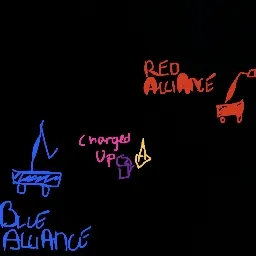 RED
ALLIANCE
Charged
Up
BLUE
ALLIANCE